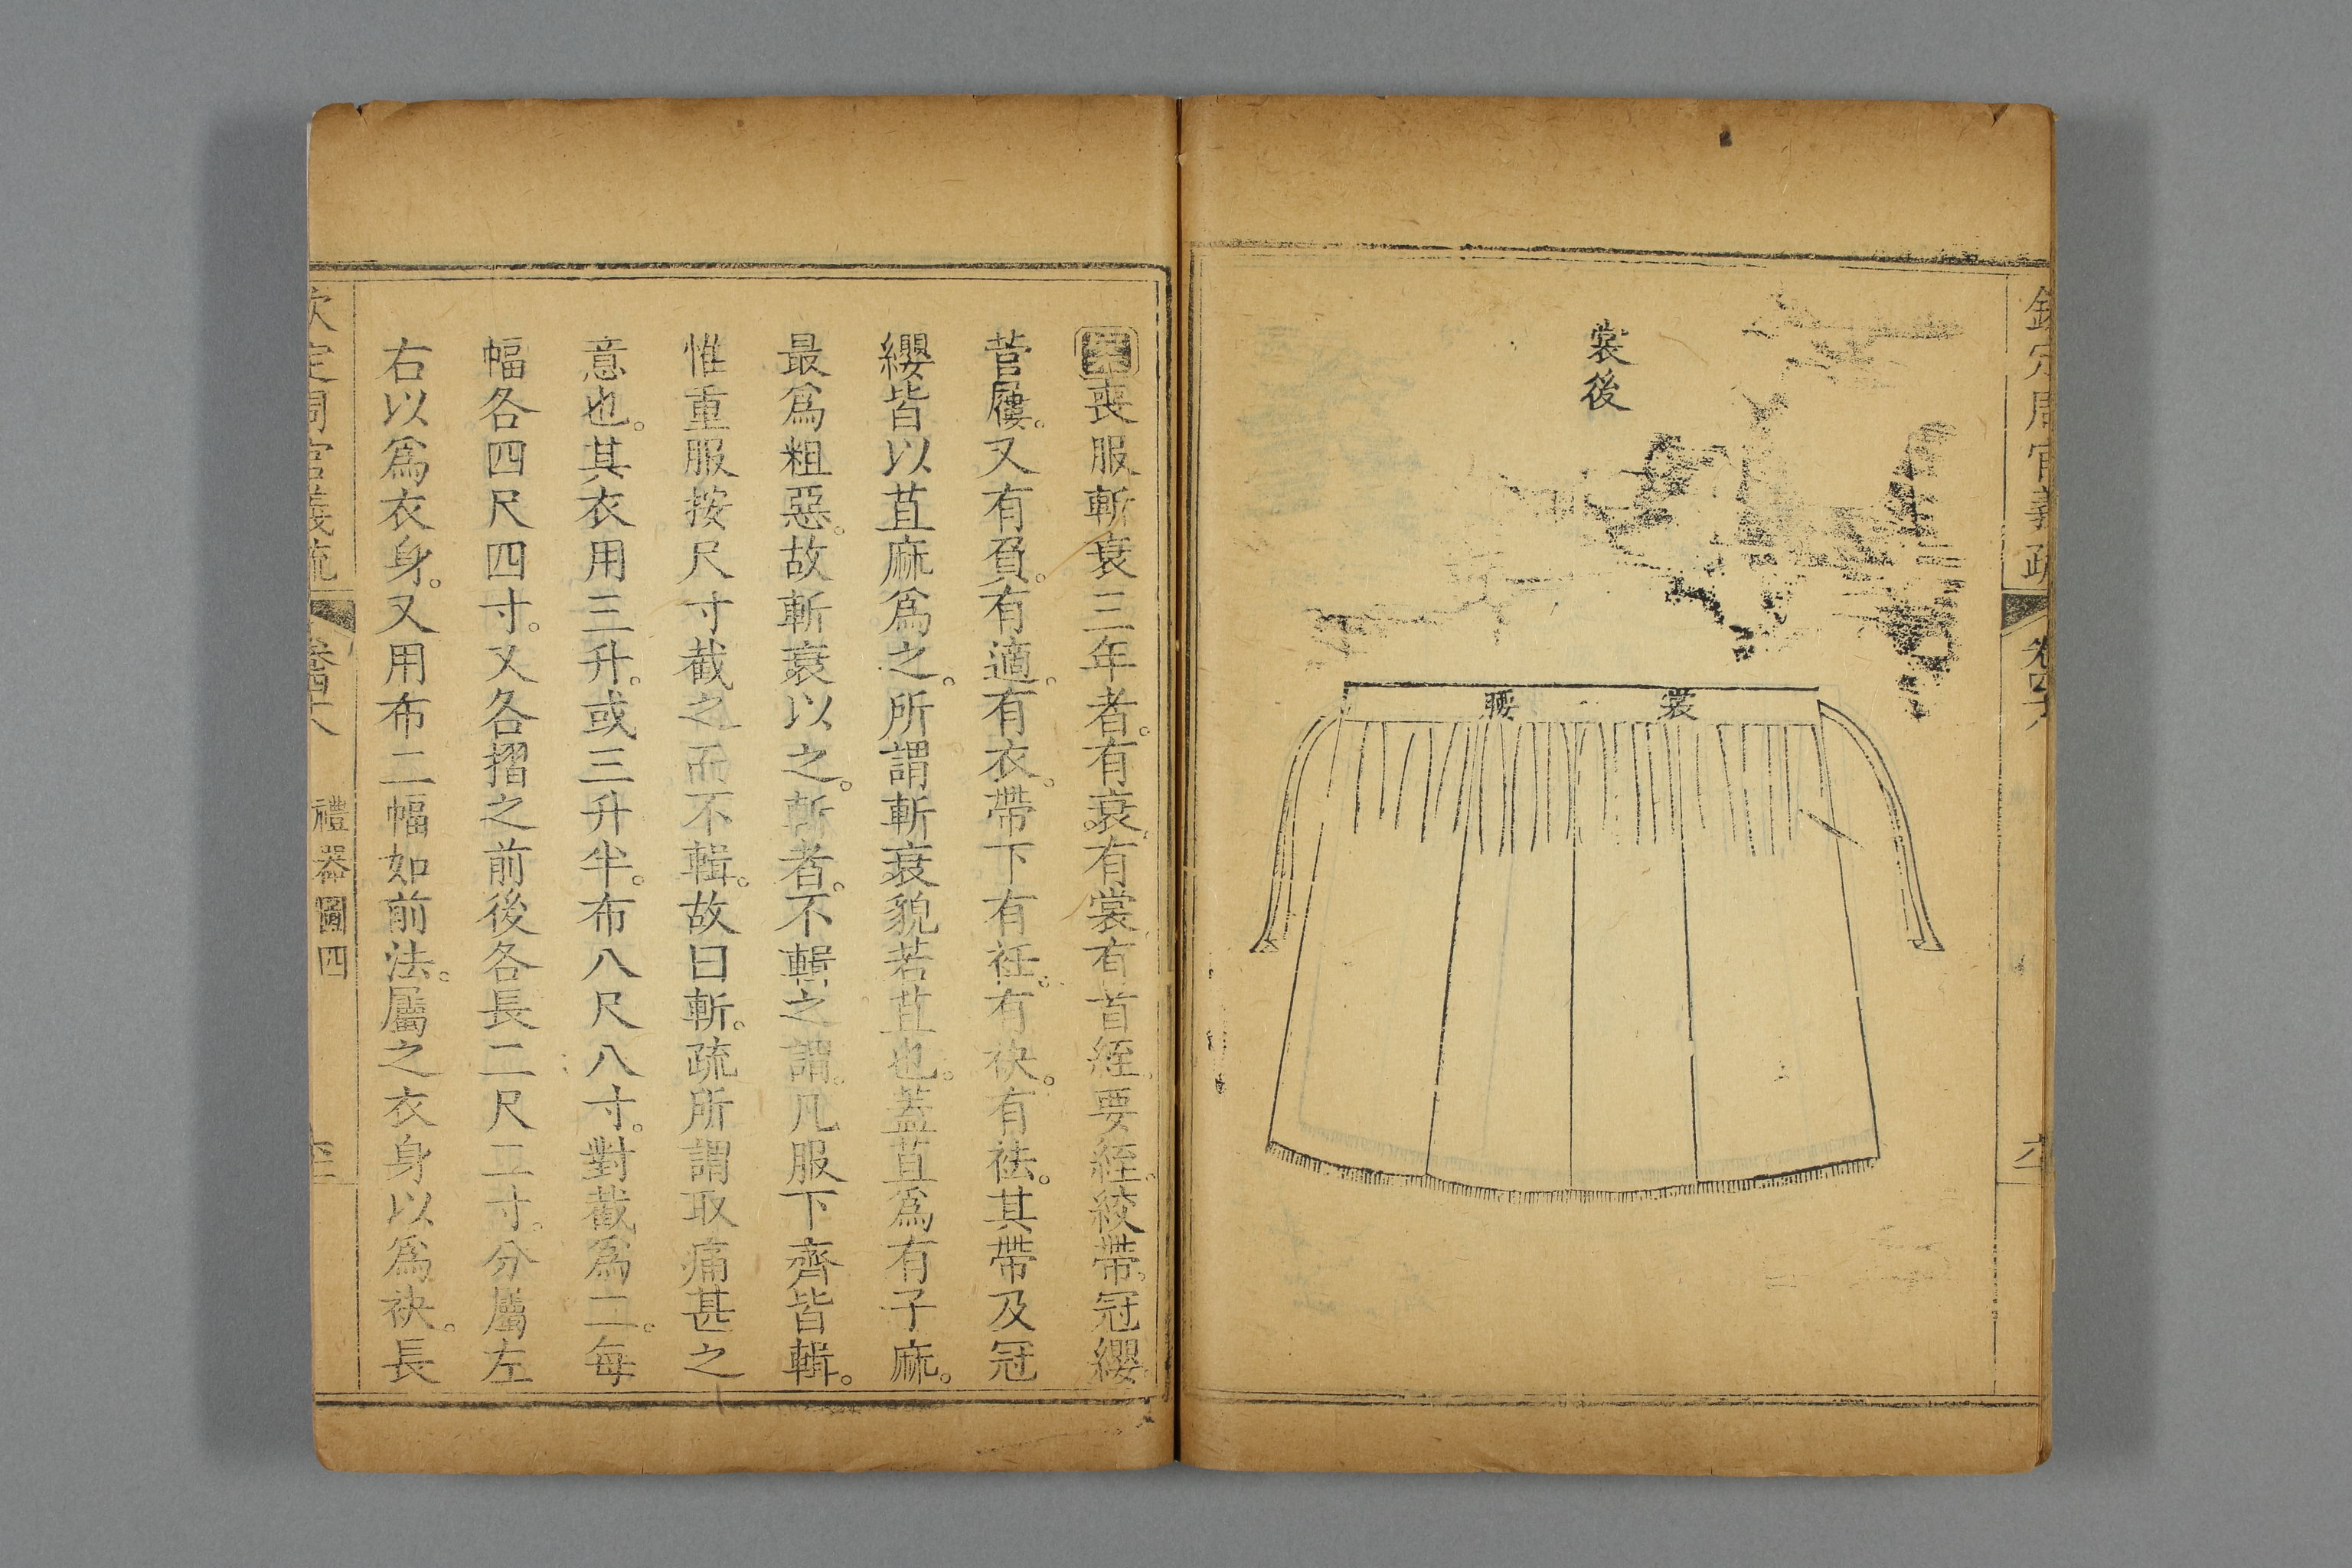 欽定周官義疏 卷四十八
裳後
裳腰
喪服斬衰三年者。有衰。有裳。有首絰。要絰。絞帶。冠纓。
菅屨。又有負。有適。有衣。帶下有衽。有袂。有袪。其帶及冠
纓皆以苴麻爲之。所謂斬衰貌若苴也。蓋苴爲有子麻。
最爲粗惡。故斬衰以之。斬者。不輯之謂。凡服下齊皆輯。
惟重服按尺寸截之而不輯。故曰斬。疏所謂取痛甚之
意也。其衣用三升。或三升半。布八尺八寸。對截爲二。每
幅各四尺四寸。又各摺之前後各長二尺二寸。分屬左
右以爲衣身。又用布二幅如前法。屬之衣身以爲袂。長
欽定周官義疏 卷四十八 禮器圖四